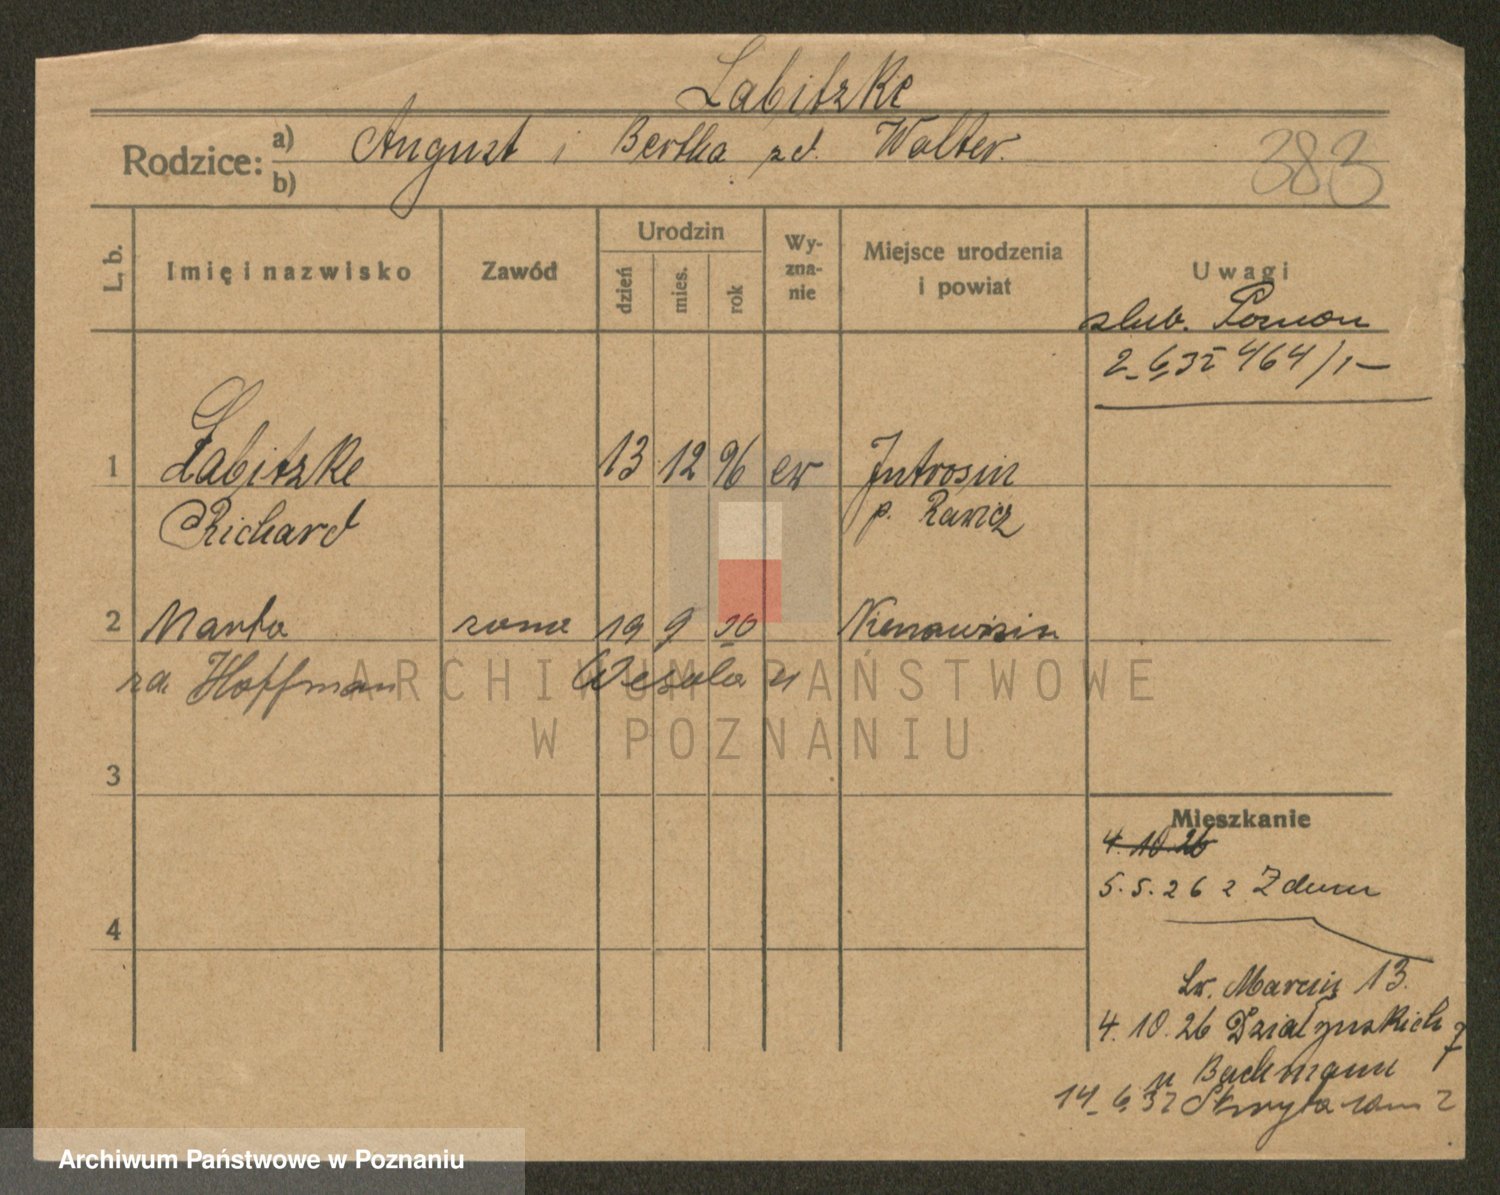 Labitzke
Rodzice: a) b) August i Bertha zd. Walter.
383
L. b.
Imię i nazwisko
Zawód
Urodzin
dzień
mies.
rok
Wy-
zna-
nie
Miejsce urodzenia
i powiat
Uwagi
slub. Poznan
2_6 32 464/1-
1 Labitzke 13 12 96 ew Jutrosin
Richard p. Rawicz
2 Marta zona 19 9 00
zd. Hoffman
3
4
Mieszkanie
4.10.26
5.5.26 z Zduny
Sw. Marcin 13.
4.10.26 Działynskich 7
u Bachmann
14_6 32
ARCHIWUM PAŃSTWOWE
W POZNANIU
Archiwum Państwowe w Poznaniu